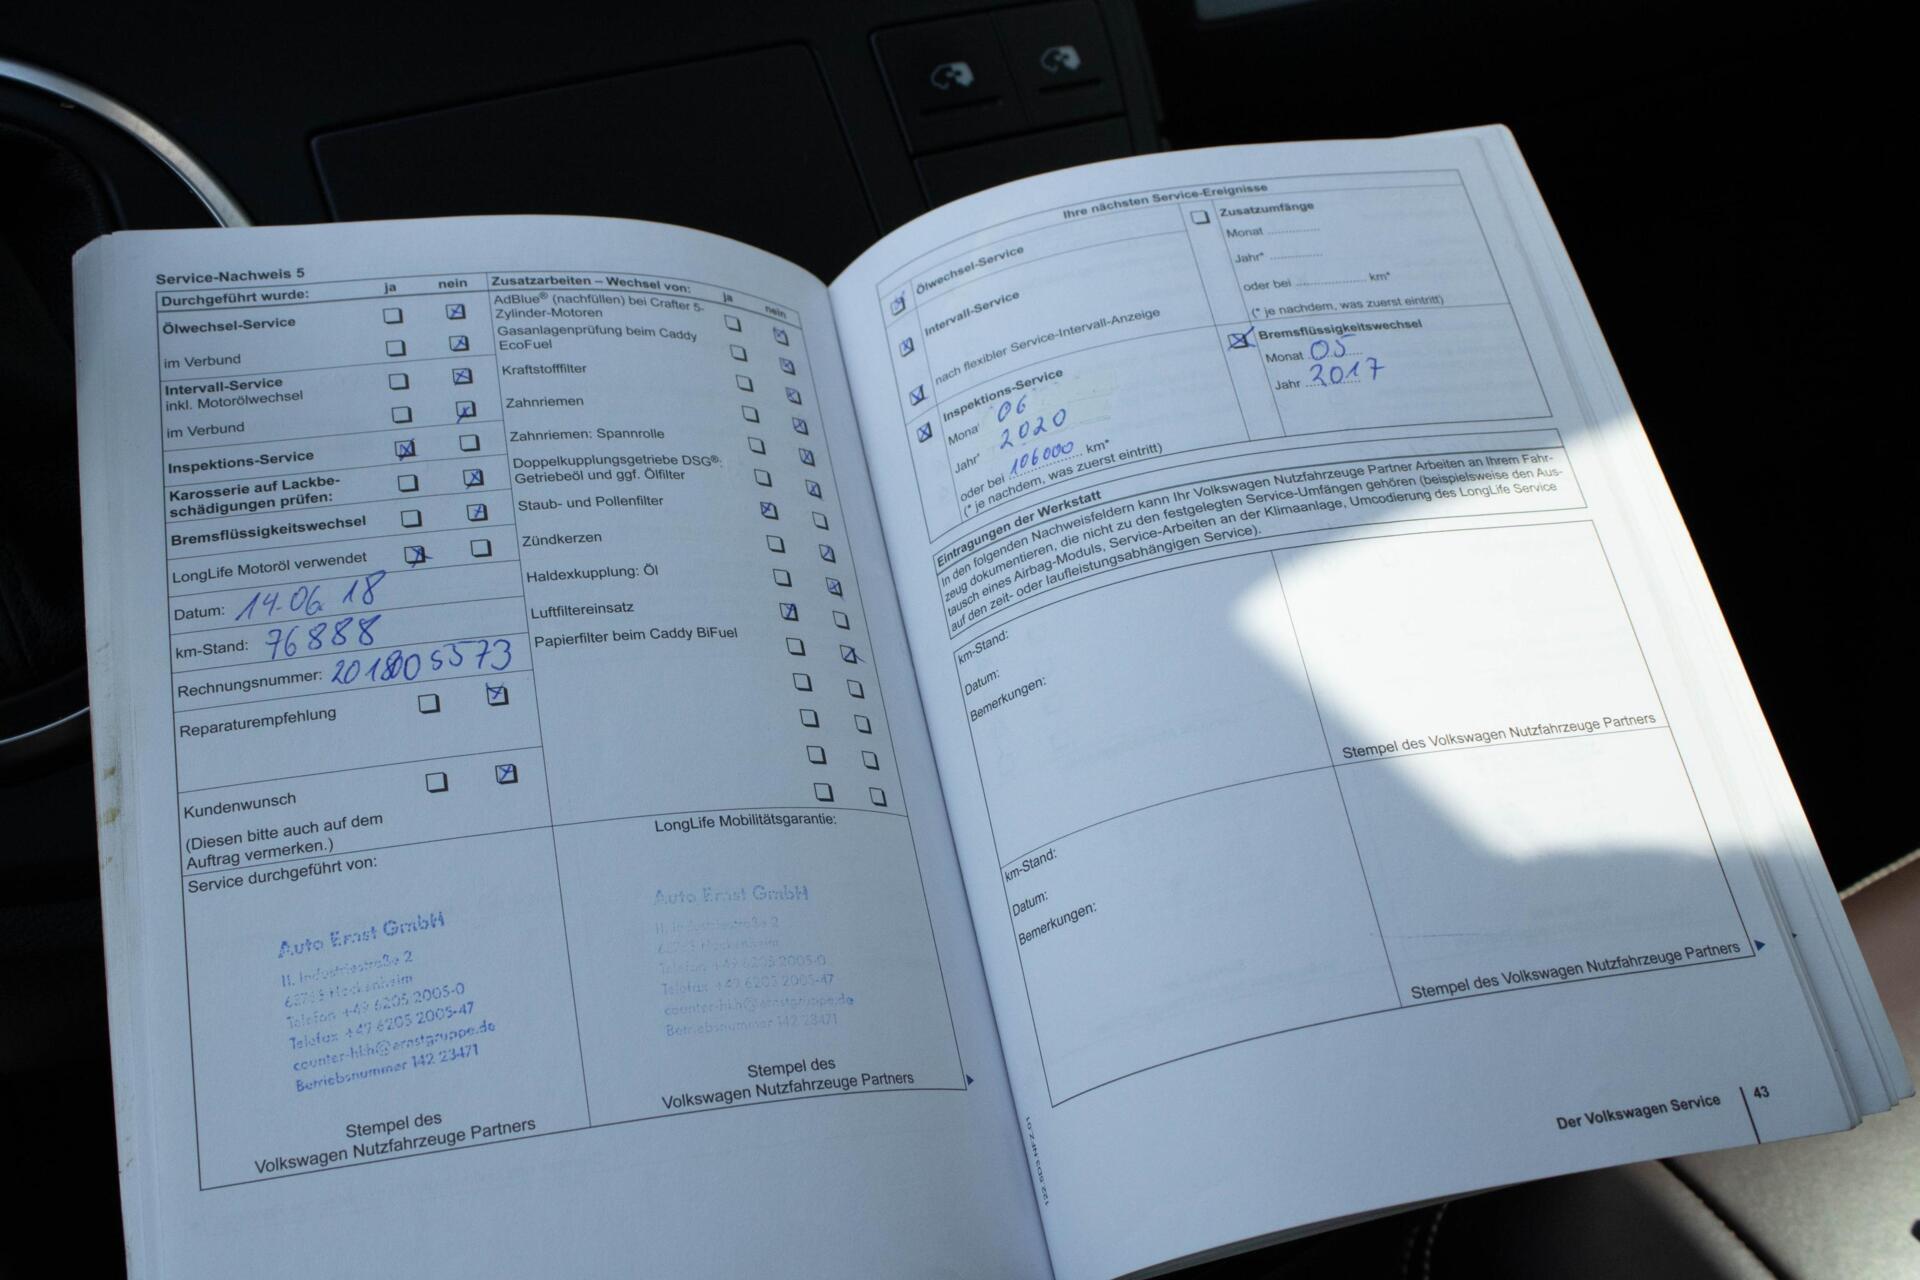 Service-Nachweis 5
Durchgeführt wurde: ja nein
Ölwechsel-Service
im Verbund
Intervall-Service
inkl. Motorölwechsel
im Verbund
Inspektions-Service
Karosserie auf Lackbe-
schädigungen prüfen:
Bremsflüssigkeitswechsel
LongLife Motoröl verwendet
Datum: 14.06.18
km-Stand: 76888
Rechnungsnummer: 201800 5573
Reparaturempfehlung
Kundenwunsch
(Diesen bitte auch auf dem
Auftrag vermerken.)
Zusatzarbeiten – Wechsel von: ja nein
AdBlue® (nachfüllen) bei Crafter 5-
Zylinder-Motoren
Gasanlagenprüfung beim Caddy
EcoFuel
Kraftstofffilter
Zahnriemen
Zahnriemen: Spannrolle
Doppelkupplungsgetriebe DSG®:
Getriebeöl und ggf. Ölfilter
Staub- und Pollenfilter
Zündkerzen
Haldexkupplung: Öl
Luftfiltereinsatz
Papierfilter beim Caddy BiFuel
Service durchgeführt von:
Auto Ernst GmbH
II. Industriestraße 2
Hockenheim
Telefon +49 6205 2005-0
Telefax +49 6205 2005-47
counter-hkh@ernstgruppe.de
Betriebsnummer 142 23471
Stempel des
Volkswagen Nutzfahrzeuge Partners
LongLife Mobilitätsgarantie:
Auto Ernst GmbH
II. Industriestraße 2
Hockenheim
Telefon +49 6205 2005-0
Telefax +49 6205 2005-47
counter-hkh@ernstgruppe.de
Betriebsnummer 142 23471
Stempel des
Volkswagen Nutzfahrzeuge Partners
Ihre nächsten Service-Ereignisse
Ölwechsel-Service
Intervall-Service
nach flexibler Service-Intervall-Anzeige
Inspektions-Service
Monat 06
Jahr* 2020
oder bei 106000 km*
(* je nachdem, was zuerst eintritt)
Zusatzumfänge
Monat ...............
Jahr* ...............
oder bei .................... km*
(* je nachdem, was zuerst eintritt)
Bremsflüssigkeitswechsel
Monat 05
Jahr 2017
Eintragungen der Werkstatt
In den folgenden Nachweisfeldern kann Ihr Volkswagen Nutzfahrzeuge Partner Arbeiten an Ihrem Fahr-
zeug dokumentieren, die nicht zu den festgelegten Service-Umfängen gehören (beispielsweise den Aus-
tausch eines Airbag-Moduls, Service-Arbeiten an der Klimaanlage, Umcodierung des LongLife Service
auf den zeit- oder laufleistungsabhängigen Service).
km-Stand:
Datum:
Bemerkungen:
Stempel des Volkswagen Nutzfahrzeuge Partners
km-Stand:
Datum:
Bemerkungen:
Stempel des Volkswagen Nutzfahrzeuge Partners
Der Volkswagen Service 43